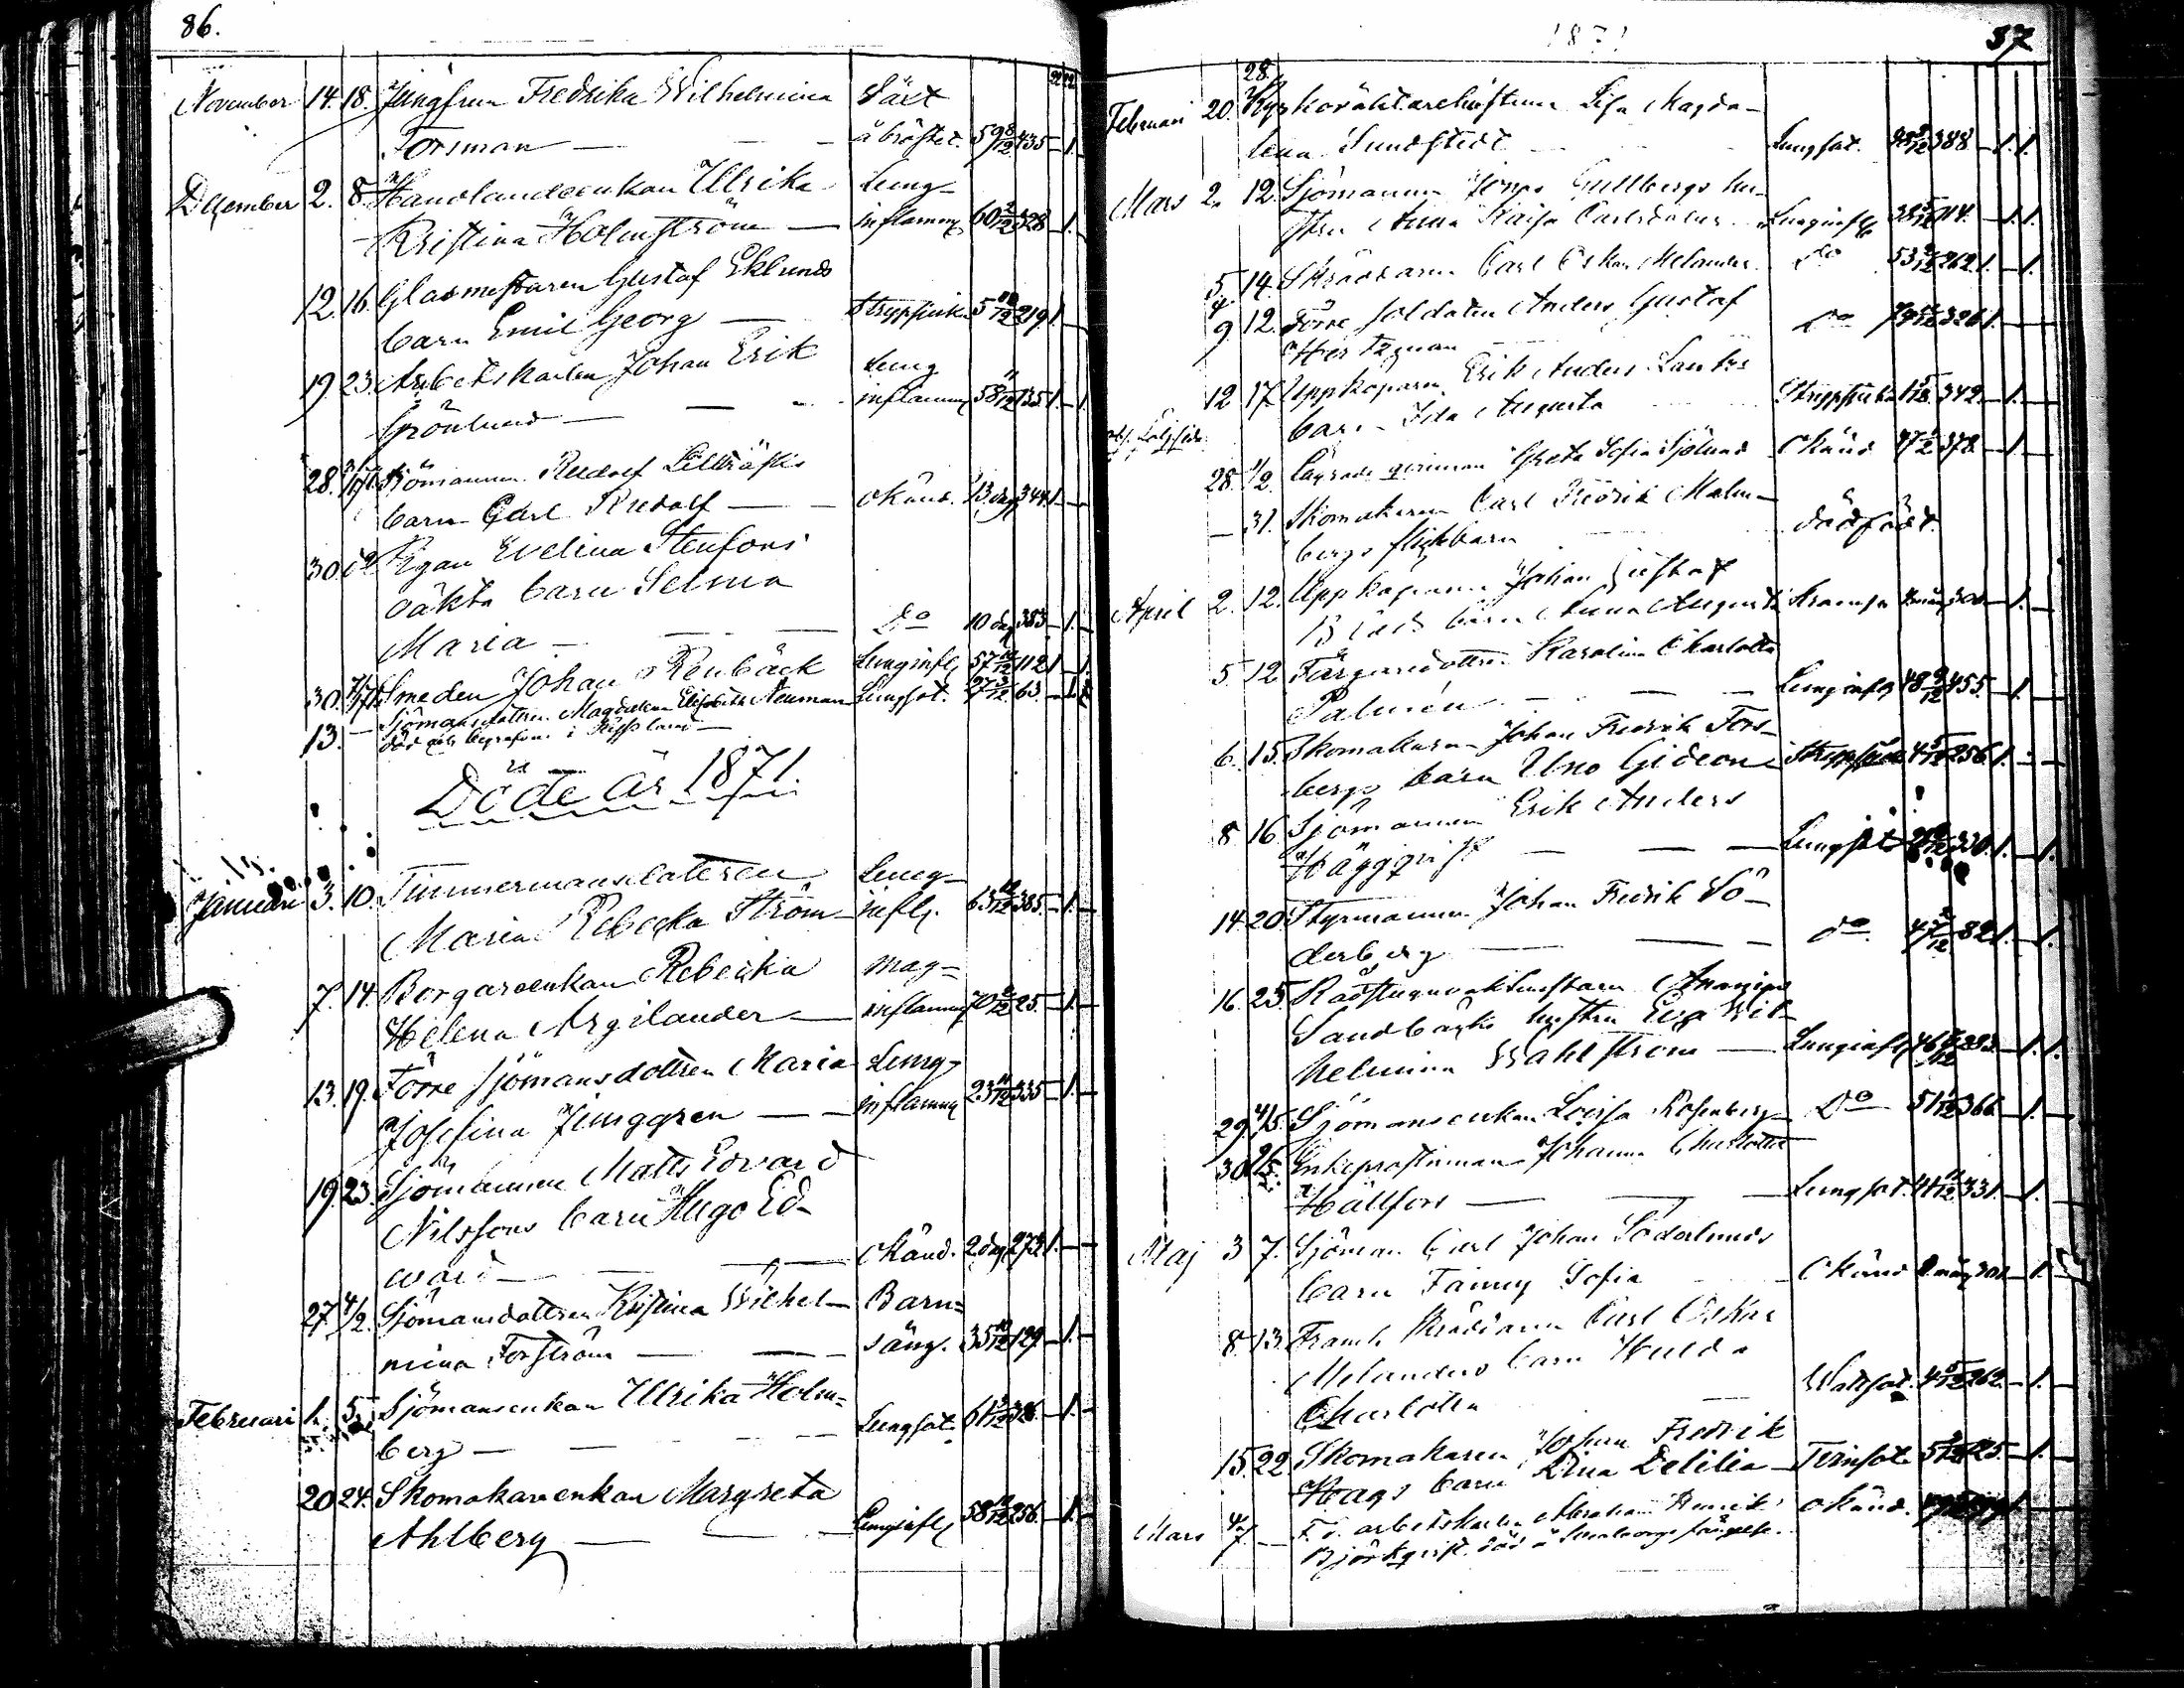 86.
November 14. 18. Jungfrun Fredrika Wilhelmina Växt
Forsman — å bröstet. 59 8/12 435 — 1.
December 2. 8. Handlandeenkan Ulrika Lung-
Kristina Holmström — inflamm 60 2/12 328 — 1.
12. 16. Glasmestaren Gustaf Eklunds
barn Emil Georg — Strypsjuka 5 10/12 219 1. —
19 23. Arbetskarlen Johan Erik Lung
Grönlund — inflamm 58 11/12 135 1. — 1.
28. Sjömannen Rudolf
barn Carl Rudolf — okänd. 13 dag 344 1. —
30. do Pigan Evelina Stenfors
oäkta barn Selma
Maria — do 10 dag 383 — 1. —
30. Smeden Johan Renbäck Lunginfl, 57 10/12 112 1 — 1.
13. — Sjömansdottren Magdalena Elisabeth Neuman Lungsot. 27 3/12 63. — 1.
död och begrafven i Ryssland —
Döde år 1871.
Januari 3. 10. Timmermansdottren Lung-
Maria Rebecka Ström inflg. 63 10/12 385. — 1. —
7. 14. Borgareenkan Rebecka mag-
Helena Argilander — inflamm 70 2/12 25. — 1. —
13. 19. Förre sjömansdottren Maria Lung-
Josefina Ljunggren — inflamm 23 11/12 335 — 1. —
19. 23. Sjömannen Matts Edvard
Nilssons barn Hugo Ed-
ward — okänd. 2 dag 273 1. —
27 4/2. Sjömansdottren Kristina Wilhel- Barn-
mina Forström — säng. 35 10/12 129. — 1. —
Februari 1. 5. Sjömansenkan Ulrika Holm-
berg — Lungsot. 61 3/12 326 — 1. —
20 24. Skomakareenkan Margreta
Ahlberg — Lunginfl, 58 10/12 256. — 1. —
1871
87
28.
Februari 20. Kyrkoväktarehustrun Lisa Magda-
lena Sundstedt Lungsot. 388 — 1. 1.
Mars 2. 12. Sjömannen Jonas Gullbergs hu-
stru Anna Kaisa Carlsdotter Lunginfl 14. — 1. 1.
5 14. Skräddaren Carl Oskar Melander do 53 262 1. — 1.
9 12. Förre soldaten Anders Gustaf
do 326 1. —
12 17 Uppköparen Erik Anders
barn Ida Augusta Strypsjuka 342. — 1. —
28. 1/2. Greta Sofia Sjölund okänd 378. — 1.
— 31. Skomakaren Carl Fredrik Malm-
bergs flickbarn dödfödt.
April 2. 12. Uppköparen Johan Gustaf
barn Anna Augusta Kramp 300 — 1. —
5. 12 Färgaredottren Karolina Charlotta
Palmén — Lunginfl, 48 9/12 455. — 1. —
6. 15. Skomakaren Johan Fredrik Fors-
bergs barn Uno Gideon Strypsjuka 4 5/12 256 1. —
8 16 Sjömannen Erik Anders
Häggqvist — Lungsot 330. 1. — 1.
14. 20. Styrmannen Johan Fredrik Sö-
derberg — do. 47 2/12 82 1. — 1.
16. 25. Ananias
Sandbäcks hustru Eva Wil-
helmina Wahlström — Lunginfl 46 393. — 1. 1.
29. 4/5. Sjömansenkan Lovisa Rosenberg do 51 1/12 366 — 1. —
30. Enkeprostinnan Johanna Charlotta
Hällfors — Lungsot. 41 11/12 331. — 1. —
Maj 3 7. Sjöman Carl Johan Söderlunds
barn Fanny Sofia okänd 8 mån 301 — 1.
8. 13. Framl. Skräddaren Carl Oskar
Melanders barn Hulda
Charlotta — Wattsot. 4 262. — 1. —
15. 22. Skomakaren Johan Fredrik
Hags barn Dina Delilia — Tvinsot. 5 125. — 1. —
Mars — F. d. arbetskarlen Abraham Henrik okänd.
Björkqvist död å fängelse.